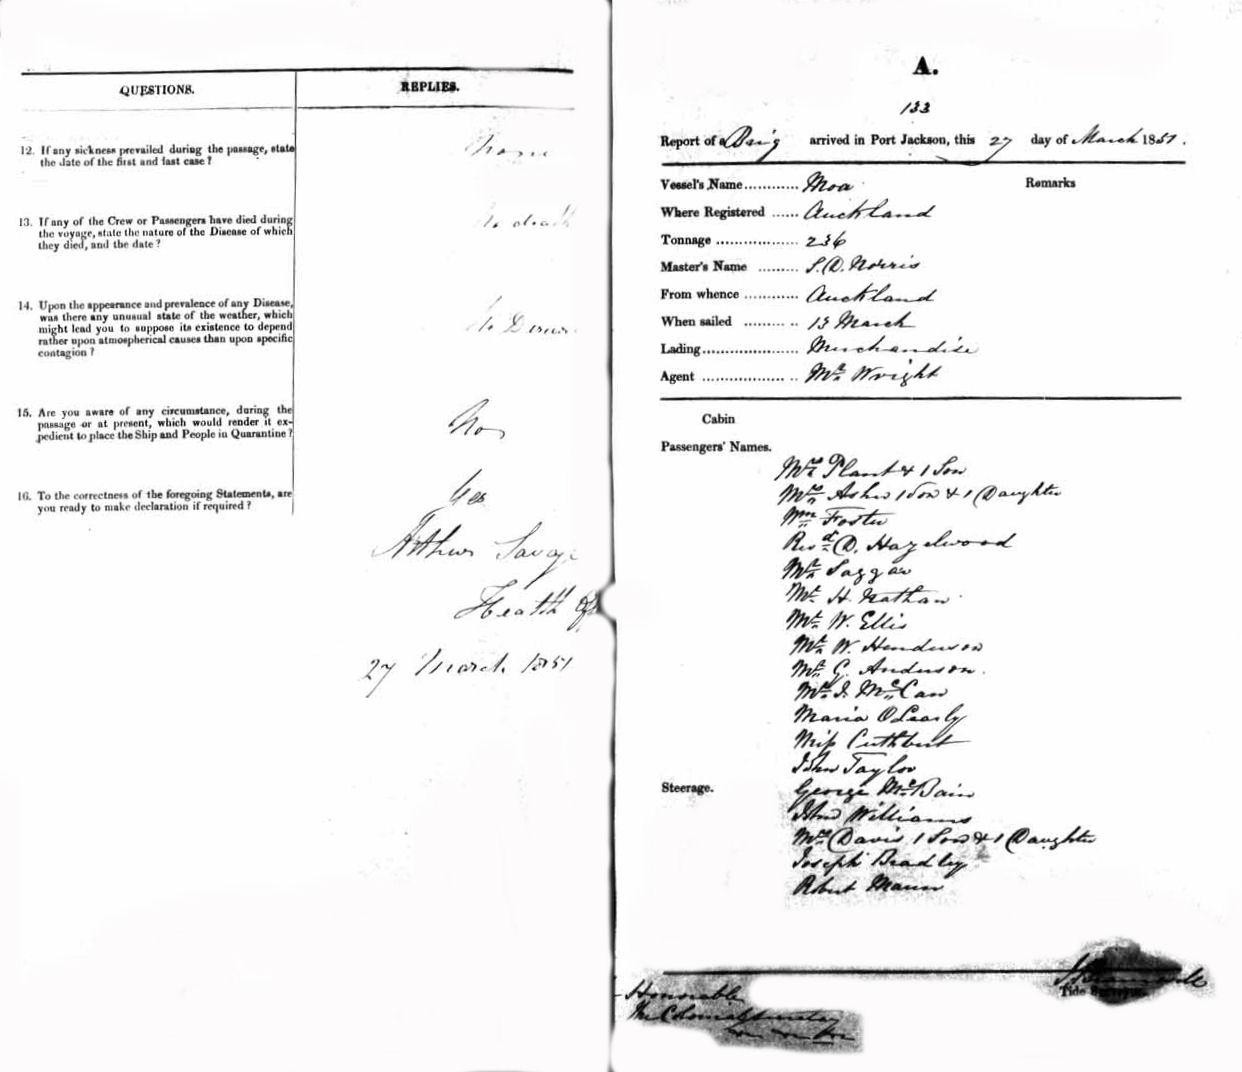 QUESTIONS.
REPLIES.
12. If any sickness prevailed during the passage, state
the date of the first and last case?
None
13. If any of the Crew or Passengers have died during
the voyage, state the nature of the Disease of which
they died, and the date?
No death
14. Upon the appearance and prevalence of any Disease,
was there any unusual state of the weather, which
might lead you to suppose its existence to depend
rather upon atmospherical causes than upon specific
contagion?
No
15. Are you aware of any circumstance, during the
passage or at present, which would render it ex-
pedient to place the Ship and People in Quarantine?
No
16. To the correctness of the foregoing Statements, are
you ready to make declaration if required?
Yes
Arthur Savage
Health Off
27 March 1851
A.
133
Report of a Brig arrived in Port Jackson, this 27 day of March 1851.
Vessel's Name............ Moa
Remarks
Where Registered ...... Auckland
Tonnage .................. 236
Master's Name ......... S. D. Norris
From whence ............ Auckland
When sailed ......... .. 13 March
Lading..................... Merchandise
Agent .................. .. Mr. Wright
Cabin
Passengers' Names.
Mrs Plant & 1 Son
Mrs Asher 1 Son & 1 Daughter
Wm Foster
Revd. D. Hazelwood
Mr. Saggar
Mr. H. Nathan
Mr. W. Ellis
Mr. W. Henderson
Mr. G. Anderson.
Mr. J. McCan
Maria O'Learly
Miss Cuthbert
John Taylor
Steerage.
George McBain
John Williams
Mrs Davis 1 Son & 1 Daughter
Joseph Bradley
Robert Mann
Tide Surveyor.
Honorable
The Colonial Secretary